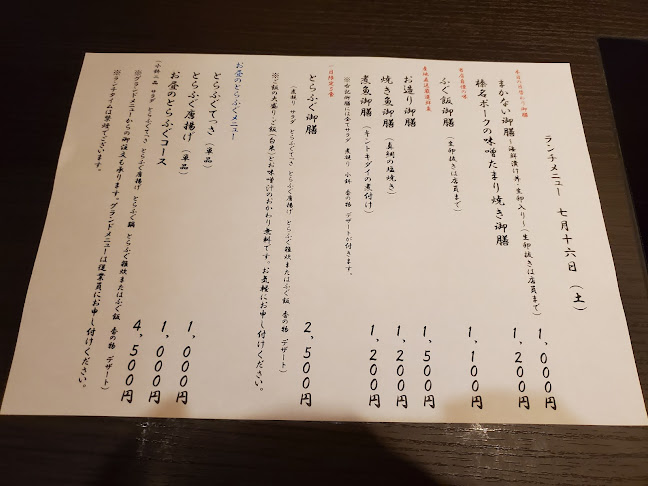 ランチメニュー 七月十六日 (土)
本日の日替わり御膳
まかない御膳~海鮮漬け丼・生卵入り~(生卵抜きは店員まで) 1,000円
榛名ポークの味噌たまり焼き御膳 1,200円
当店自慢の味
ふぐ飯御膳(生卵抜きは店員まで) 1,100円
産地直送厳選鮮魚
お造り御膳 1,500円
焼き魚御膳(真鯛の塩焼き) 1,200円
煮魚御膳(キントキダイの煮付け) 1,200円
※右記御膳には全てサラダ 煮凝り 小鉢 香の物 デザートが付きます。
一日限定5食
とらふぐ御膳 2,500円
(煮凝り サラダ とらふぐてっさ とらふぐ唐揚げ とらふぐ雑炊またはふぐ飯 香の物 デザート)
※ご飯の大盛り・ご飯(白米)とお味噌汁のおかわり無料です。お気軽にお申し付けください。
お昼のとらふぐメニュー
とらふぐてっさ(単品) 1,000円
とらふぐ唐揚げ(単品) 1,000円
お昼のとらふぐコース 4,500円
(小鉢二品 サラダ とらふぐてっさ とらふぐ唐揚げ とらふぐ鍋 とらふぐ雑炊またはふぐ飯 香の物 デザート)
※グランドメニューからの御注文も承ります。グランドメニューは従業員にお申し付けください。
※ランチタイムは禁煙でございます。